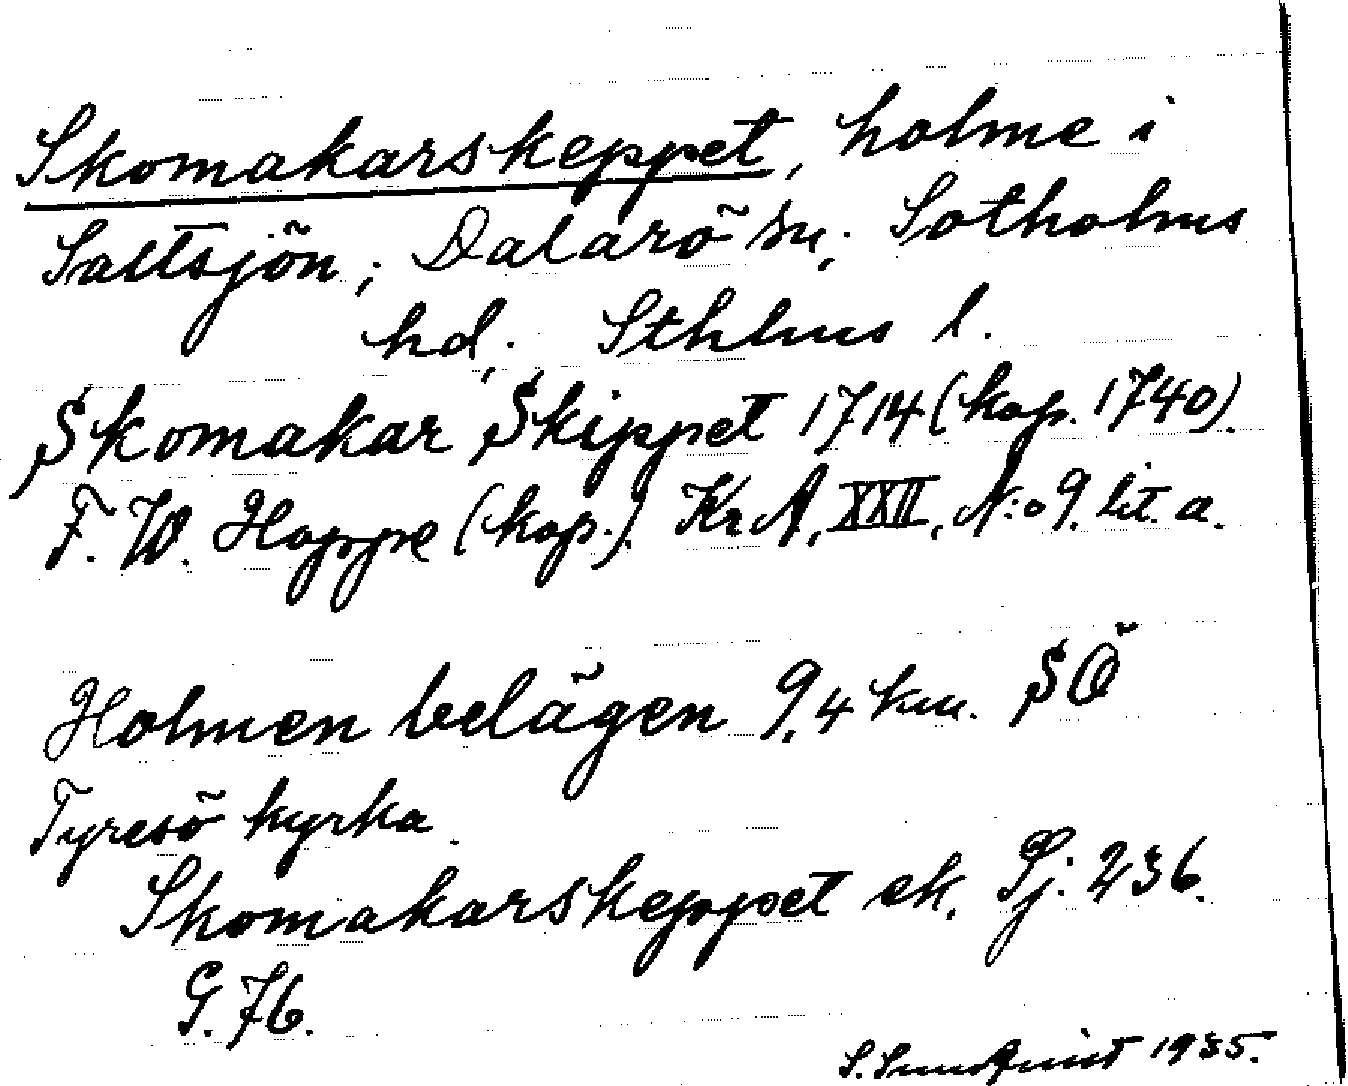 Skomakarskeppet, holme i
Saltsjön, Dalarö sn, Sotholms
hd, Sthlms l.
Skomakar Skippet 1714 (kop. 1740).
F. W. Hoppe (kop.). KrA, XXII, N:o 9. lit. a.
Holmen belägen 9,4 km. SÖ
Tyresö kyrka.
Skomakarskeppet ek. Sj: 236.
G. 76.
S. Sundquist 1935.